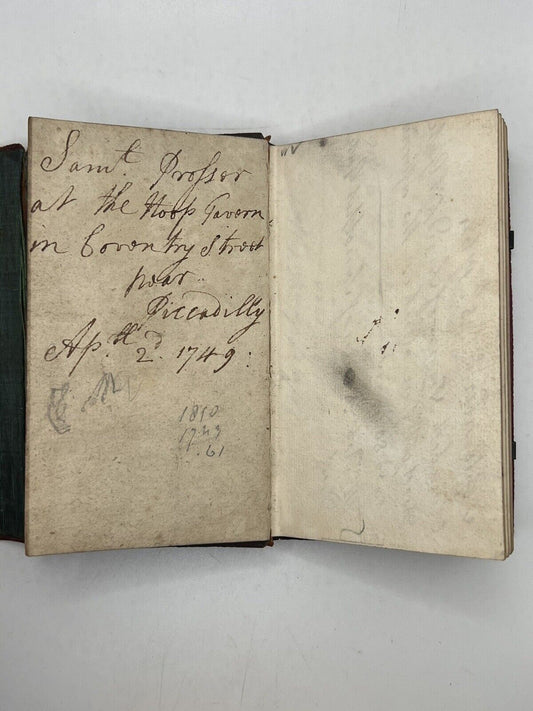 Sam.t Prosser
at the Hoop Tavern
in Coventry Street
near
Piccadilly
Ap.ll 2.d 1749:
1810
1749
.61